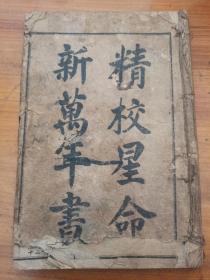 精校星命
新萬年書